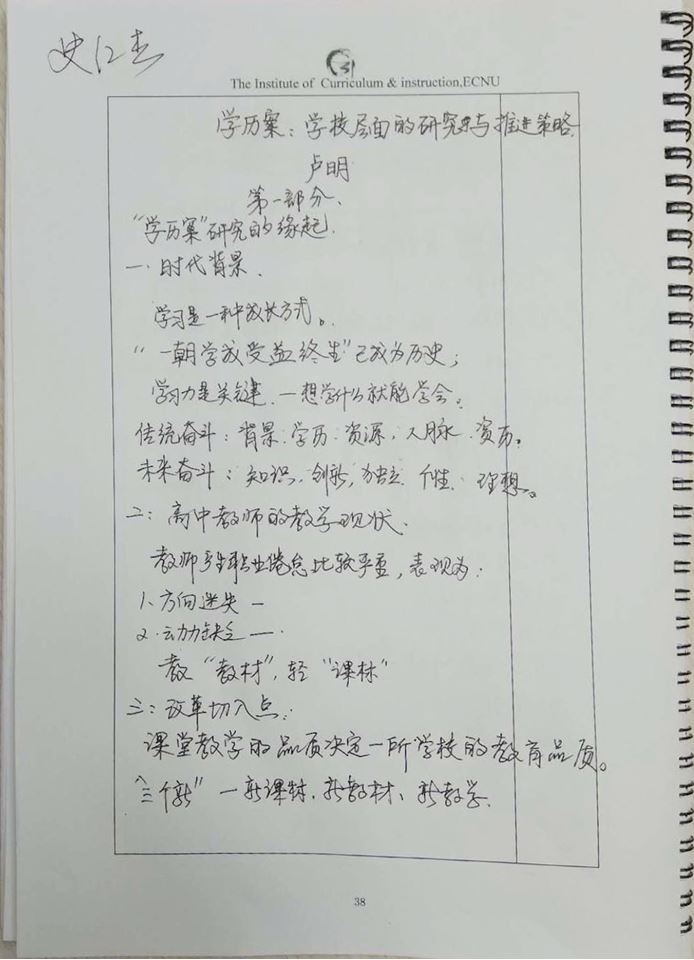 史仁杰
The Institute of Curriculum & instruction,ECNU
学历案：学校层面的研究与推进策略
卢明
第一部分、
"学历案"研究的缘起
一·时代背景、
学习是一种成长方式。
"一朝学成受益终生"已成为历史；
学习力是关键、一想学什么就能学会。
传统奋斗：背景、学历、资源、人脉、资历。
未来奋斗：知识、创新、独立、个性、理想。
二：高中教师的教学现状、
教师产生职业倦怠比较严重，表现为：
1、方向迷失 一
2·动力缺乏 一·
教"教材"，轻"课标"
三：改革切入点：
课堂教学的品质决定一所学校的教育品质。
"三个新"一新课标、新教材、新教学、
38